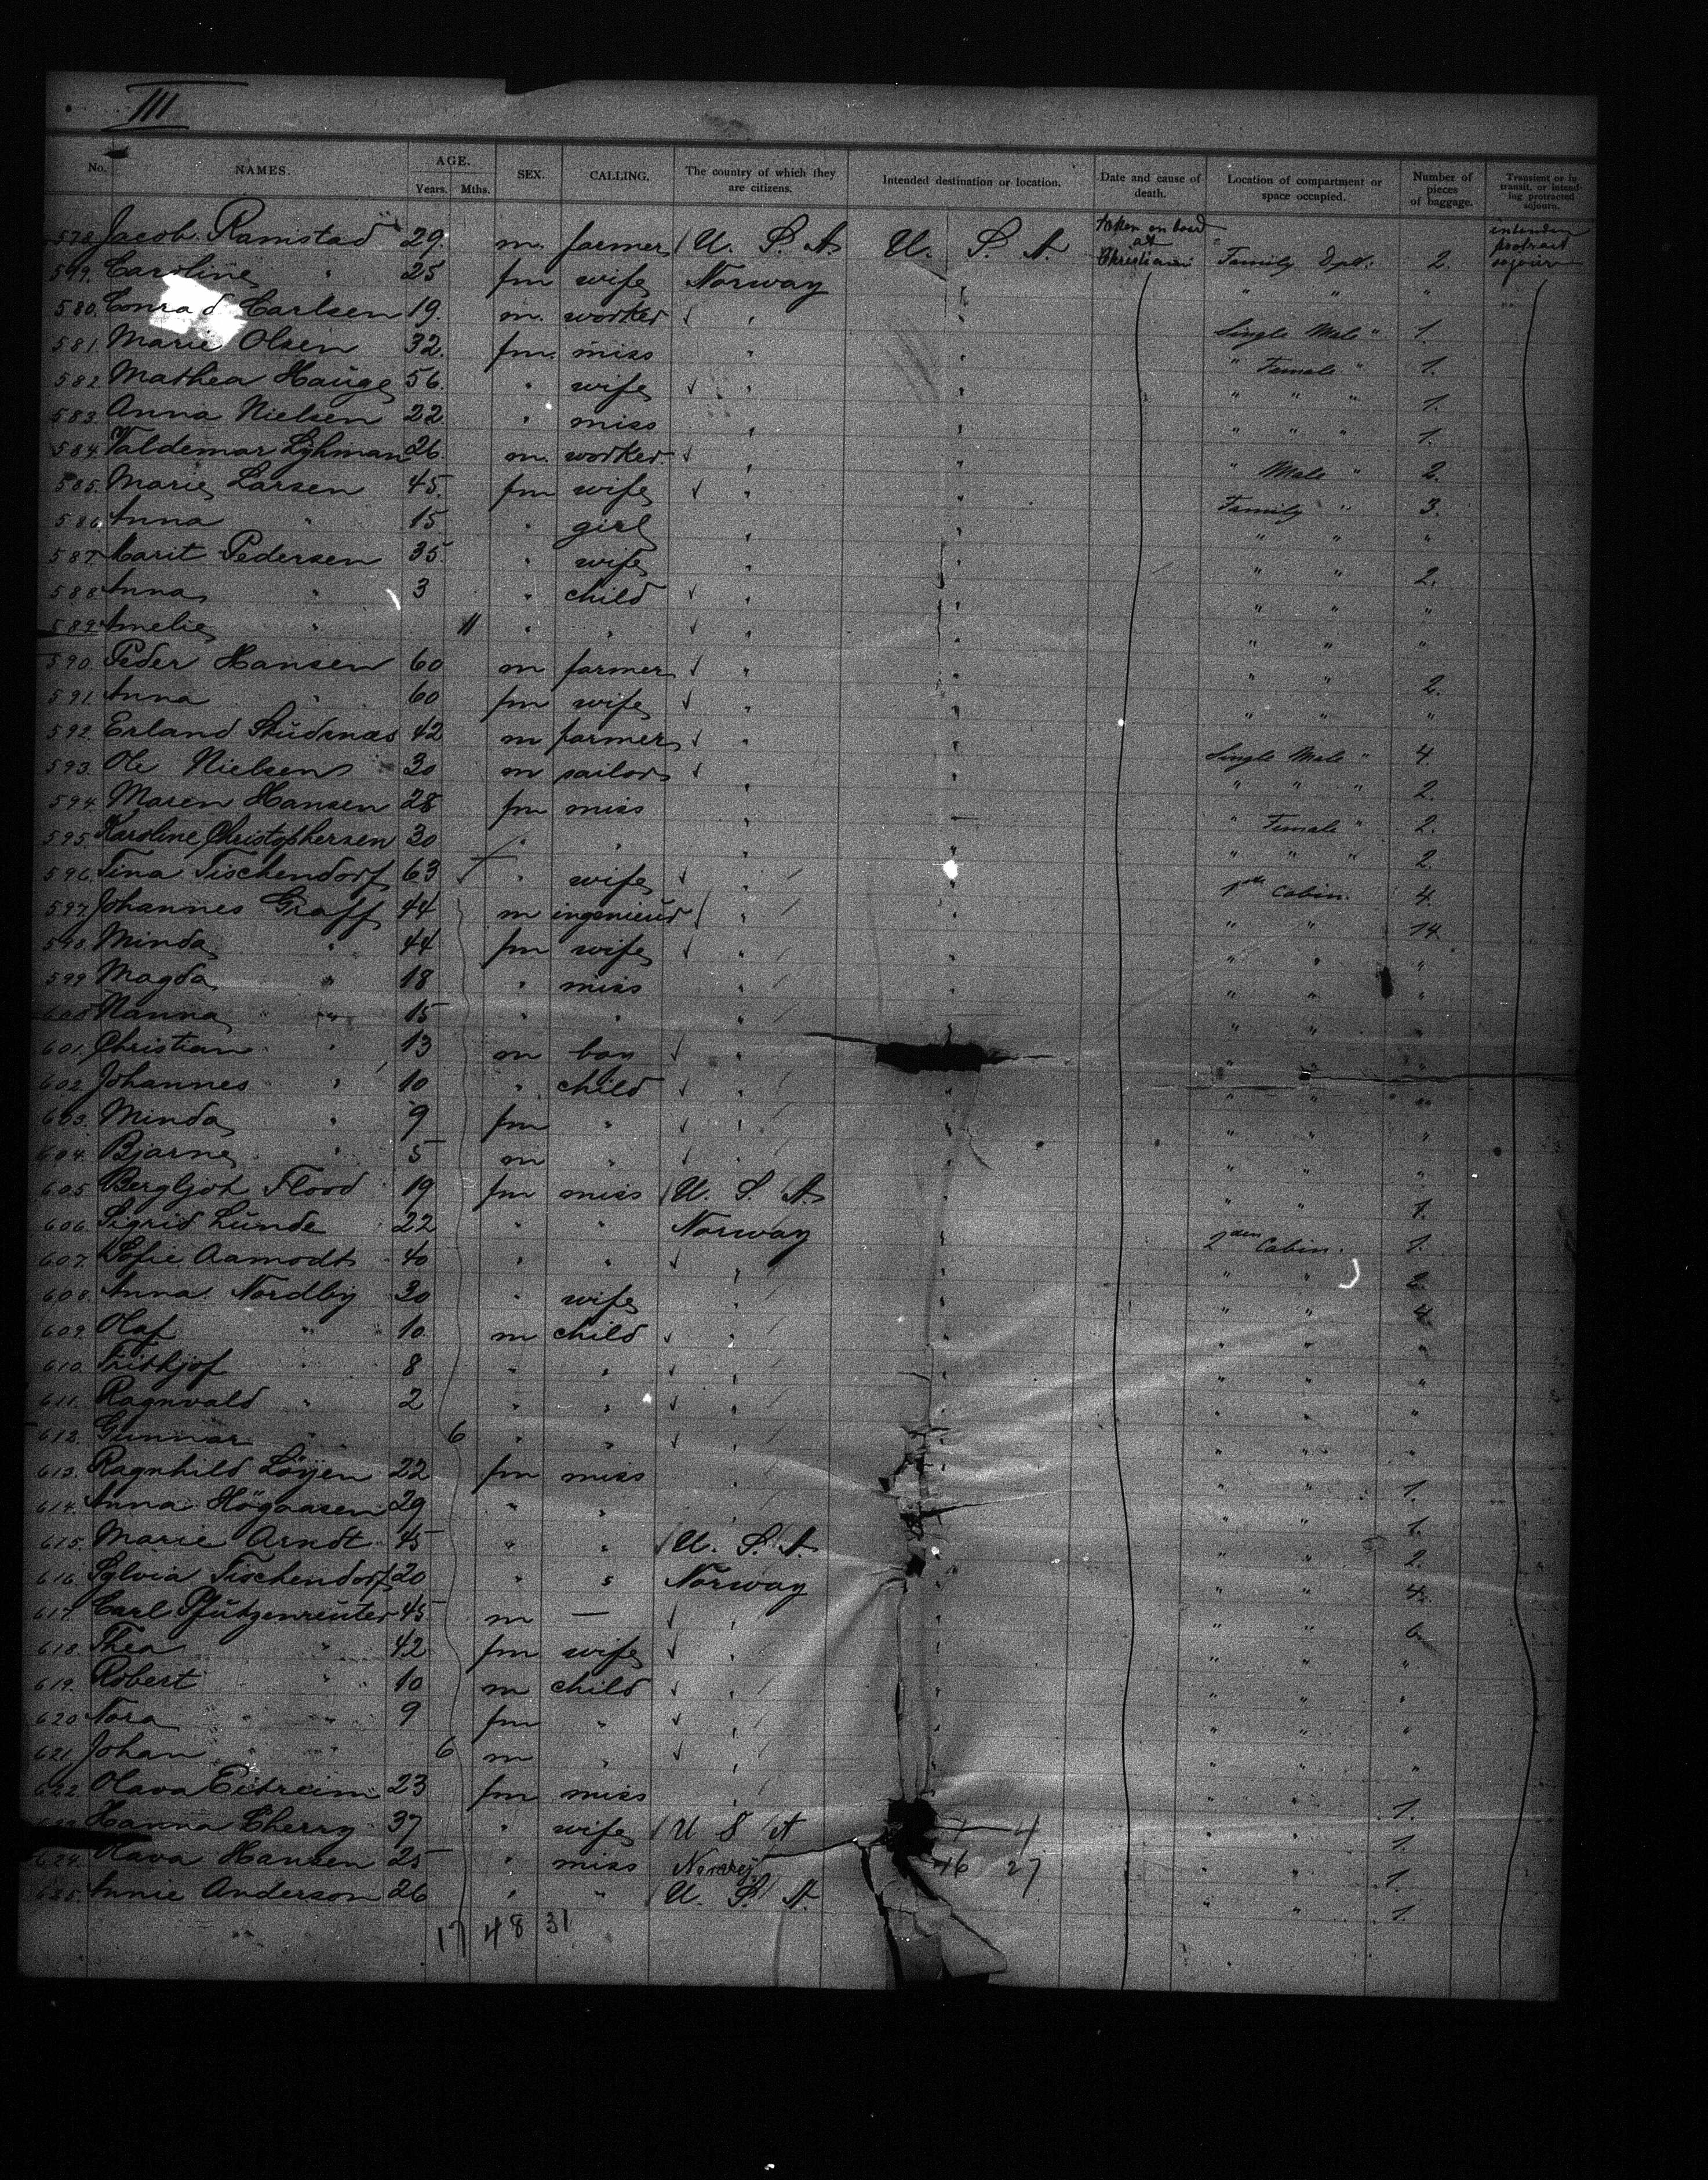 III
No. NAMES. AGE. Years. Mths. SEX. CALLING. The country of which they are citizens. Intended destination or location. Date and cause of death. Location of compartment or space occupied. Number of pieces of baggage. Transient or in transit, or intending protracted sojourn.
578. Jacob Ramstad 29. m. farmer U. S. A. U. S. A. taken on board at Christiania Family Dpt. 2. intending protract sojourn
579. Caroline " 25 fm wife Norway " " " "
580. Conrad Carlsen 19. m. worker " " Single Male " 1.
581. Marie Olsen 32. fm. miss " " " Female " 1.
582. Mathea Hauge 56. " wife " " " " " 1.
583. Anna Nielsen 22. " miss " " " " " 1.
584. Valdemar Lyhman 26. m. worker. " " " Male " 2.
585. Marie Larsen 45. fm wife " " Family " 3.
586. Anna " 15 " girl " " " " "
587. Marit Pedersen 35. " wife " " " " 2.
588. Anna " 3 " child " " " " "
589. Amelie " 11 " " " " " " "
590. Peder Hansen 60 m farmer " " " " 2.
591. Anna " 60 fm wife " " " " "
592. Erland Studsnæs 42 m farmer " " Single Male " 4.
593. Ole Nielsen 30 m sailor " " " " " 2.
594. Maren Hansen 28 fm miss " " " Female " 2.
595. Karoline Christophersen 30 " " " " " " " 2.
596. Tina Tischendorf 63 " wife " " 1ste Cabin. 4.
597. Johannes Graff 44 m ingenieur " " " " 14
598. Minda " 44 fm wife " " " " "
599 Magda " 18 " miss " " " " "
600 Nanna " 15 " " " " " " "
601. Christian " 13 m boy " " " "
602. Johannes " 10 " child " " " " "
603. Minda " 9 fm " " " " " "
604. Bjarne " 5 m " " " " " "
605 Bergljot Flood 19 fm miss U. S. A. " " " 1.
606. Sigrid Lunde 22 " " Norway " 2den Cabin. 1.
607. Sofie Aamodt 40 " " " " " " 2.
608. Anna Nordby 30 " wife " " " " 4.
609. Olaf " 10. m child " " " " "
610. Frithjof " 8 " " " " " " "
611. Ragnvald " 2 " " " " " " "
612. Gunnar " 6 " " " " " " "
613. Ragnhild Löyen 22 fm miss " " " " 1.
614. Anna Högaasen 29 " " " " " " 1.
615. Marie Arndt 45 " " U. S. A. " " " 2.
616. Sylvia Tischendorf 20 " " Norway " " " 4.
617. Carl Pfützenreuter 45 m — " " " " 6.
618. Thea " 42 fm wife " " " " "
619. Robert " 10 m child " " " " "
620 Nora " 9 fm " " " " " "
621. Johan " 6 m " " " " "
622 Olava Eitreim 23 fm miss " " " 1.
623 Hanna Cherry 37 " wife U S A 4 " " 1.
624. Olava Hansen 25 " miss Norway 16 27 " " 1.
625. Annie Anderson 26 " " U. S. A. " " 1.
17 48 31